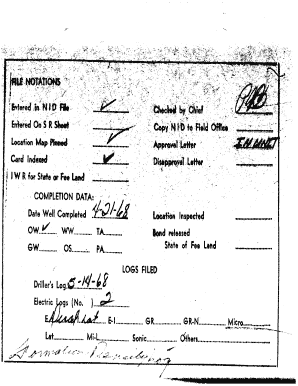 FILE NOTATIONS
Entered in NID File ✓ Checked by Chief
Entered On S R Sheet Copy NID to Field Office
Location Map Pinned ✓ Approval Letter
Card Indexed ✓ Disapproval Letter
I W R for State or Fee Land
COMPLETION DATA:
Date Well Completed 4-21-68 Location Inspected
OW ✓ WW TA Bond released
GW OS PA State of Fee Land
LOGS FILED
Driller's Log 5-14-68
Electric Logs (No. ) 2
E E-I GR GR-N Micro
Lat Mi-L Sonic Others
Formation